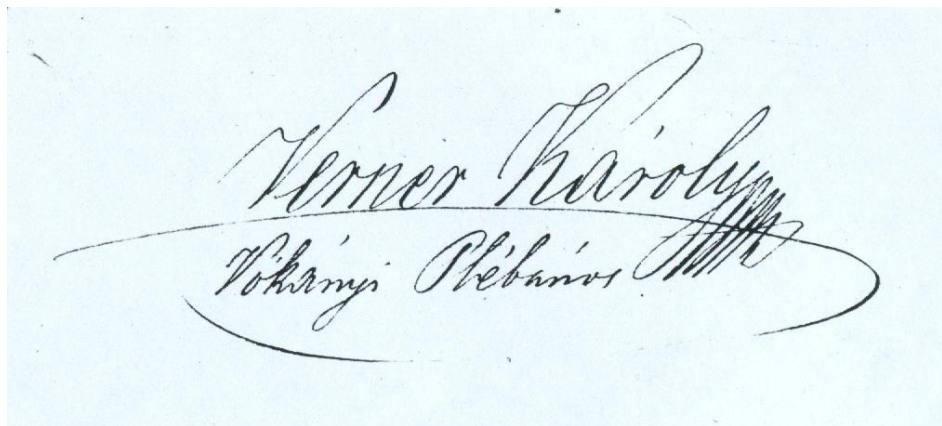 Verner Károly
Vókányi Plébános